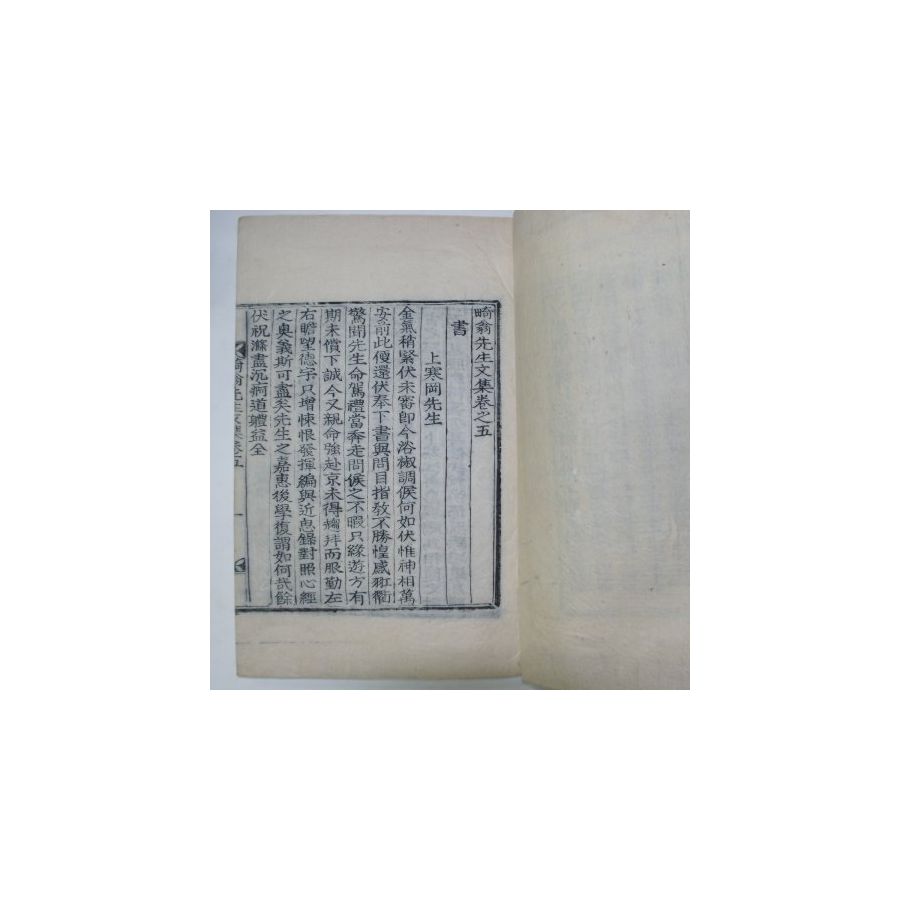 畸翁先生文集卷之五
書
上寒岡先生
金氣稍緊伏未審卽今浴椒調候何如伏惟神相萬
安前此便還伏奉下書與問目指敎不勝惶感
驚聞先生命駕禮當奔走問候之不暇只緣遊方有
期未償下誠今又親命強赴京未得拜而服勤左
右瞻望德宇只增悚恨發揮編與近思錄對照心經
之奧義斯可盡矣先生之嘉惠後學復謂如何哉餘
伏祝滌盡沉痾道軆益全
畸翁先生文集卷五 一